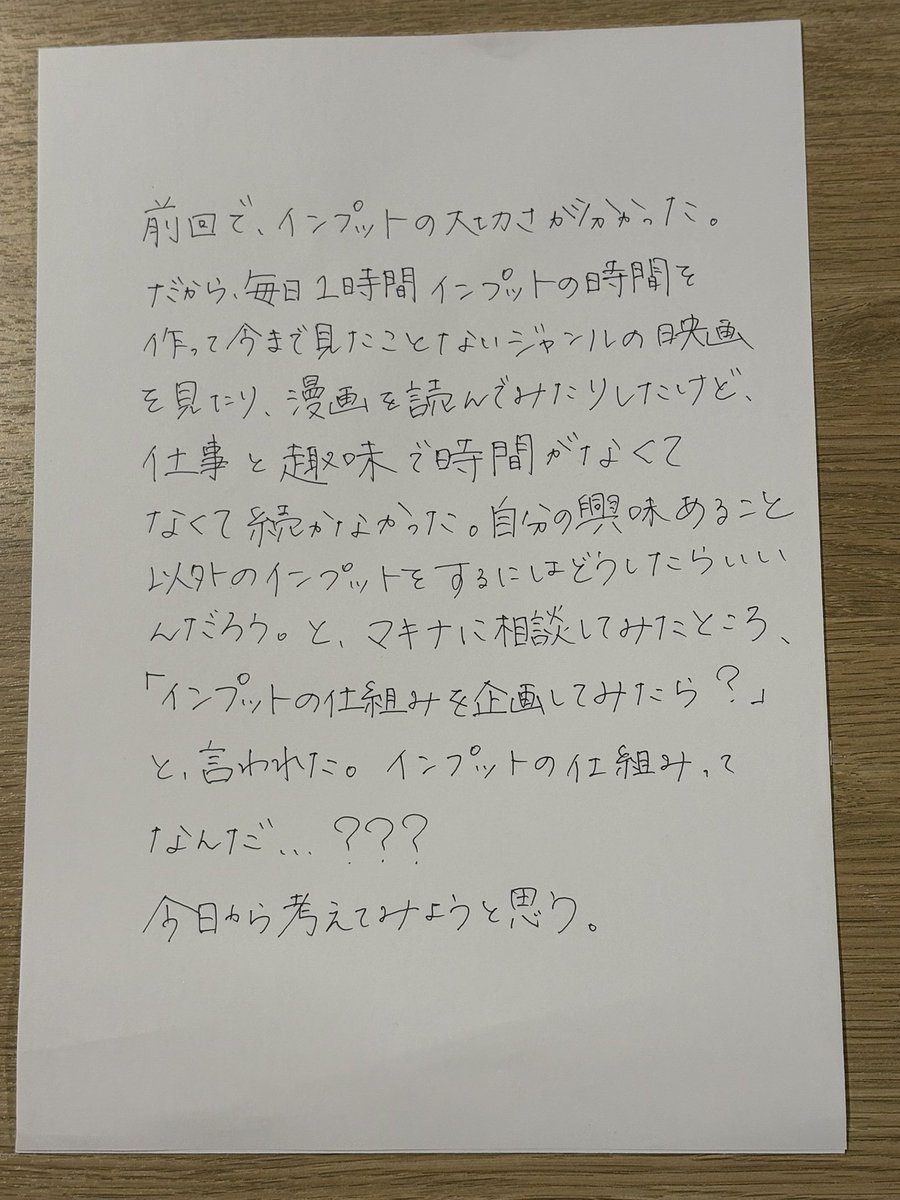 前回で、インプットの大切さが分かった。
だから、毎日1時間インプットの時間を
作って今まで見たことないジャンルの映画
を見たり、漫画を読んでみたりしたけど、
仕事と趣味で時間がなくて
なくて続かなかった。自分の興味あること
以外のインプットをするにはどうしたらいい
んだろう。と、マキナに相談してみたところ、
「インプットの仕組みを企画してみたら?」
と、言われた。インプットの仕組みって
なんだ...???
今日から考えてみようと思う。